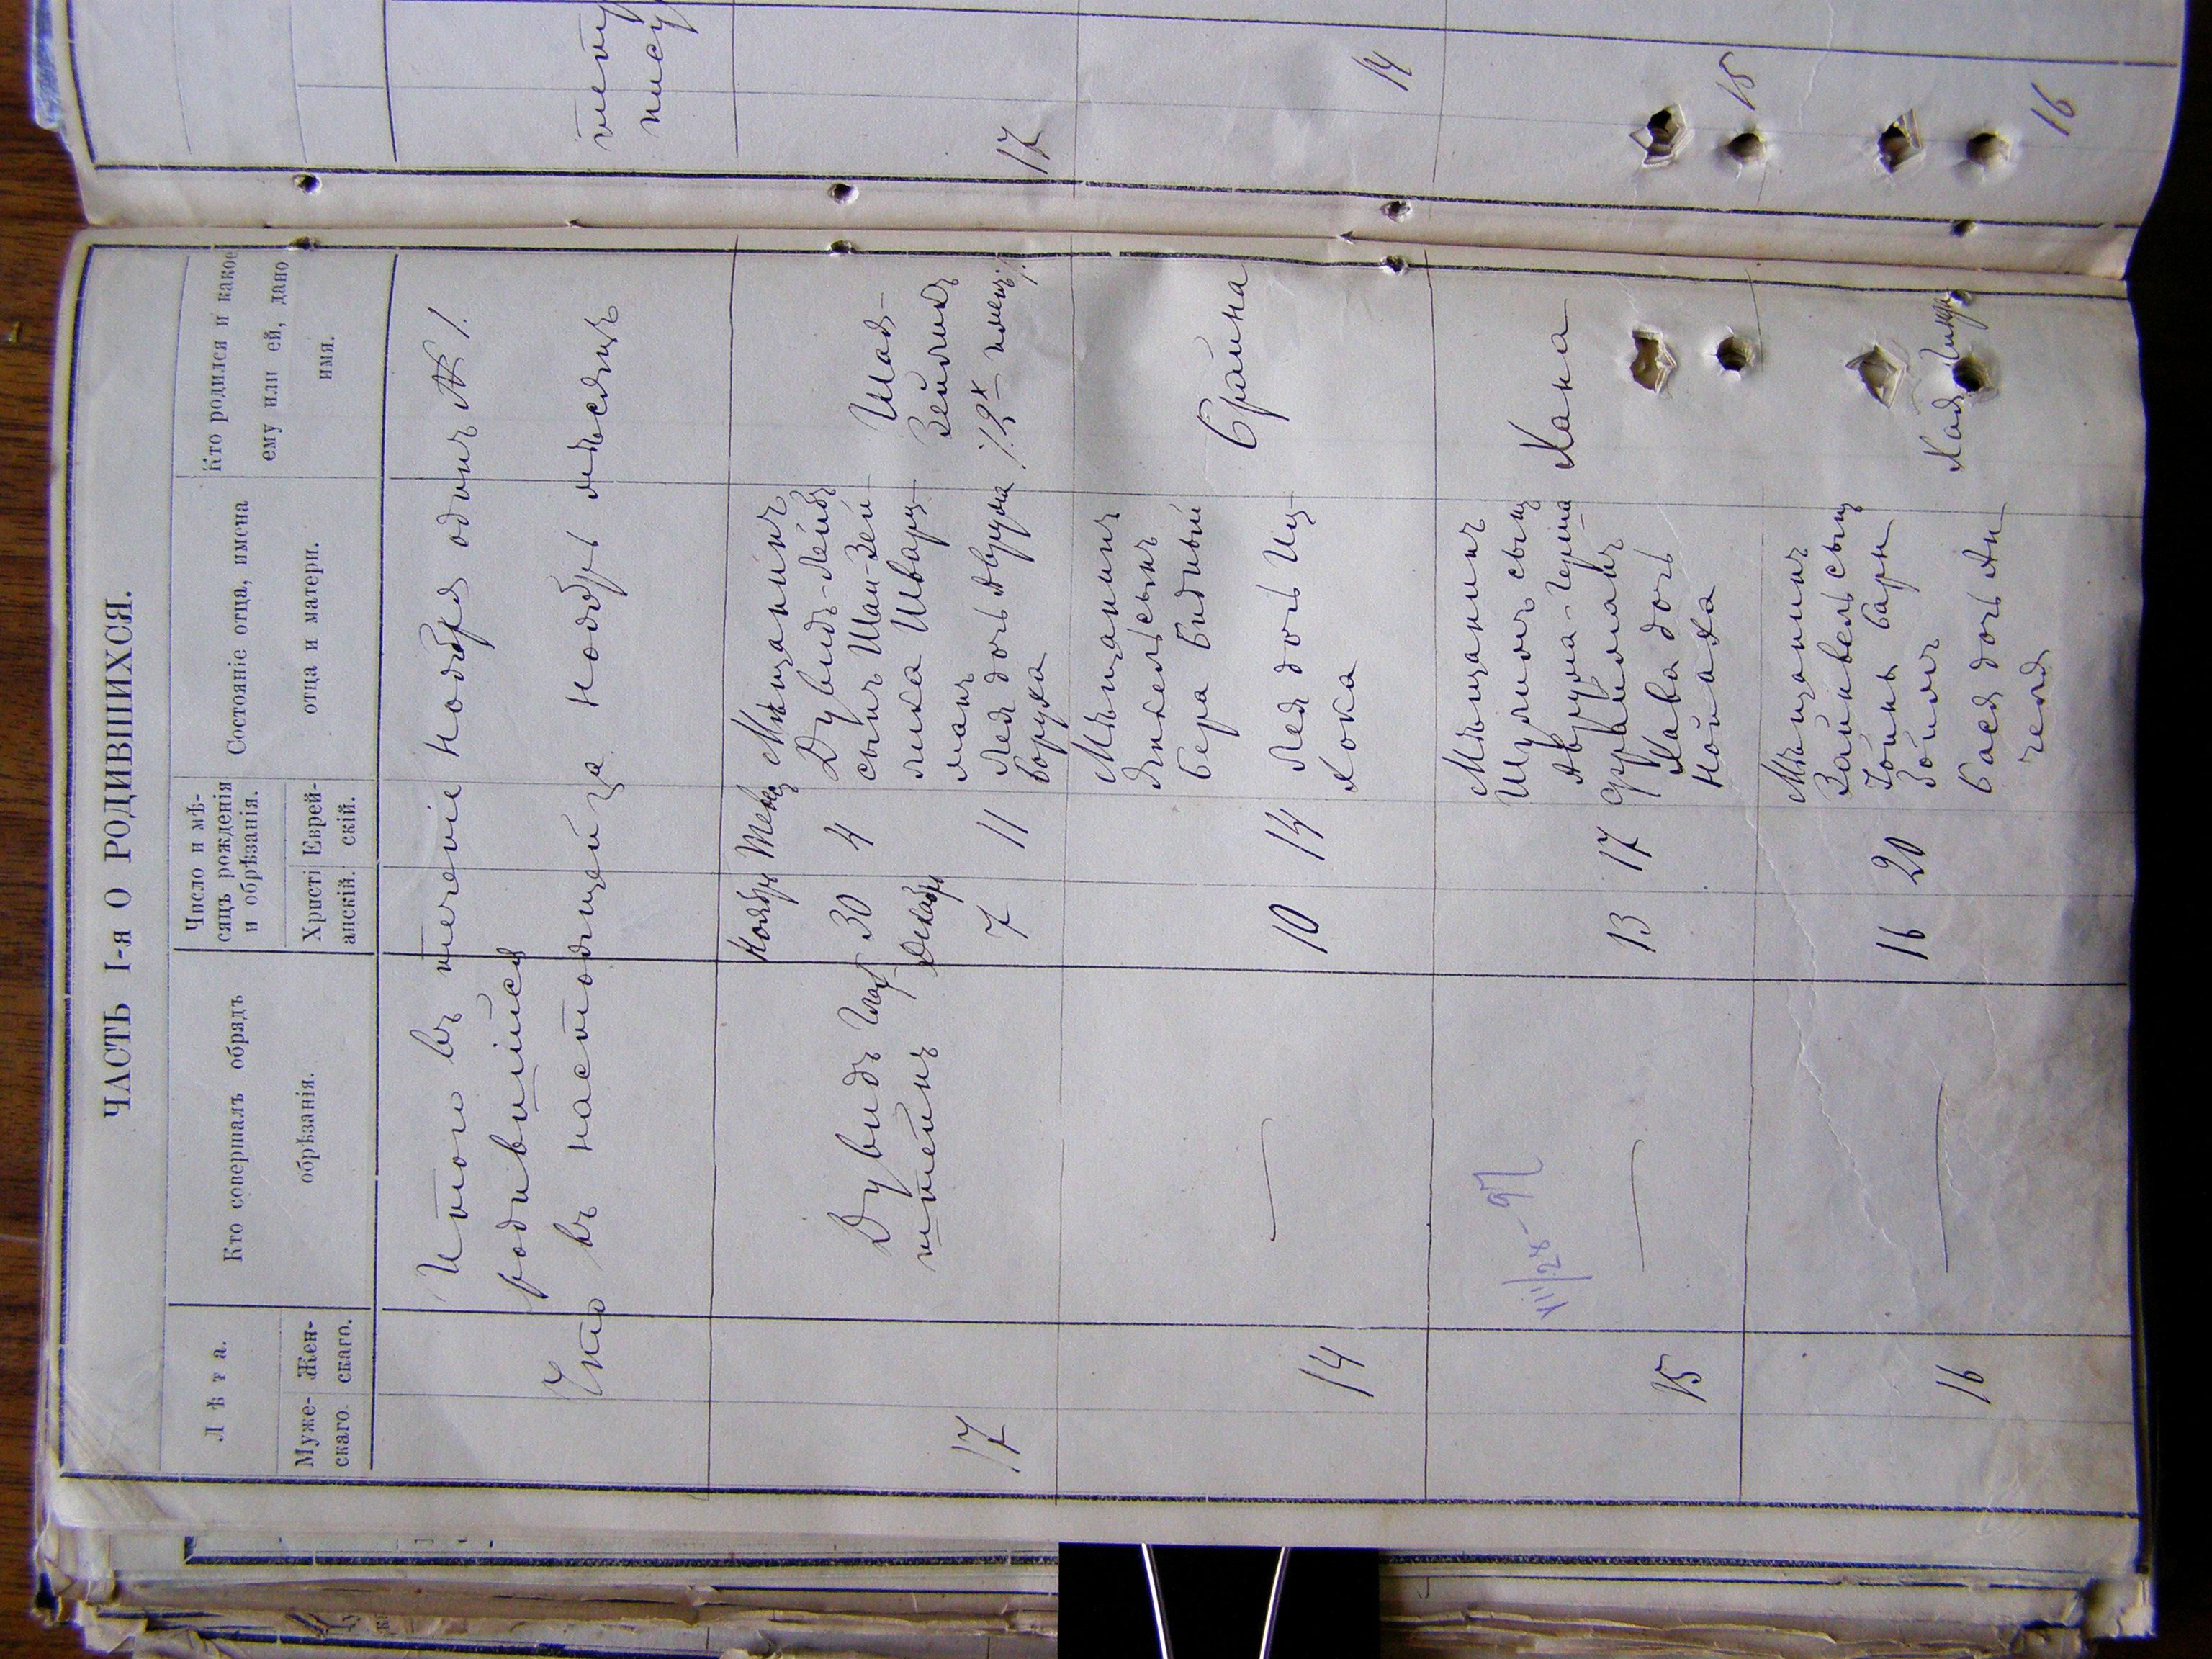 ЧАСТЬ I-я О РОДИВШИХСЯ.
Лѣта.
Муже-
скаго.
Жен-
скаго.
Кто совершалъ обрядъ
обрѣзанія.
Число и мѣ-
сяцъ рожденія
и обрѣзанія.
Христі
анскій.
Еврей-
скій.
Состояніе отца, имена
отца и матери.
Кто родился и какое
ему или ей, дано
имя.
Итого въ теченіе Ноября одинъ № 1.
родившійся
въ настоящей Ноябрь мѣсяцъ
17
Дувидъ
штейнъ
Ноября
30
Декабря
7
4
11
Мѣщанинъ
Дувидъ-Лейбъ
сынъ Шаи-Зей-
лика Шварц-
манъ
Лея дочь Аврума
Боруха
Шая-
Зейликъ
14
10
14
Мѣщанинъ
Янкель сынъ
Бера Бидный
Лея дочь Иц-
хока
Брайна
15
13
17
Мѣщанинъ
Шулимъ сынъ
Аврума-Герша
Фрайманъ
Хава дочь
Нойаха
Хана
16
16
20
Мѣщанинъ
Зайнвель сынъ
Бася дочь Ан
челя
Хая
17
14
15
16